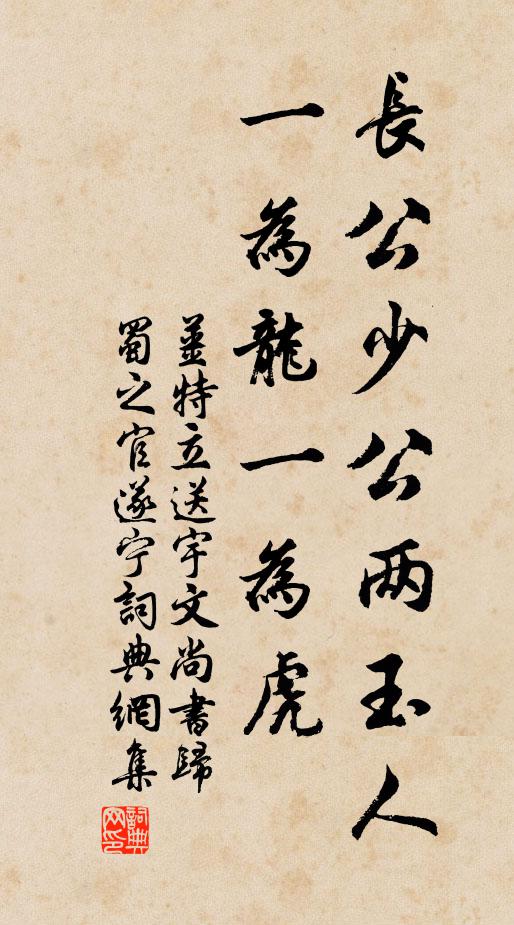 長公少公两玉人
一為龍一為虎
姜特立送宇文尚書歸
蜀之官遂宁詞典網集
詞典网印